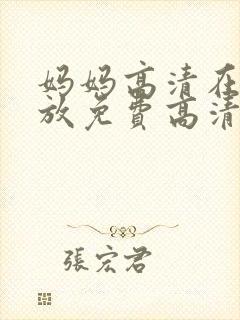 妈妈高清在
放免费高清
張宏君